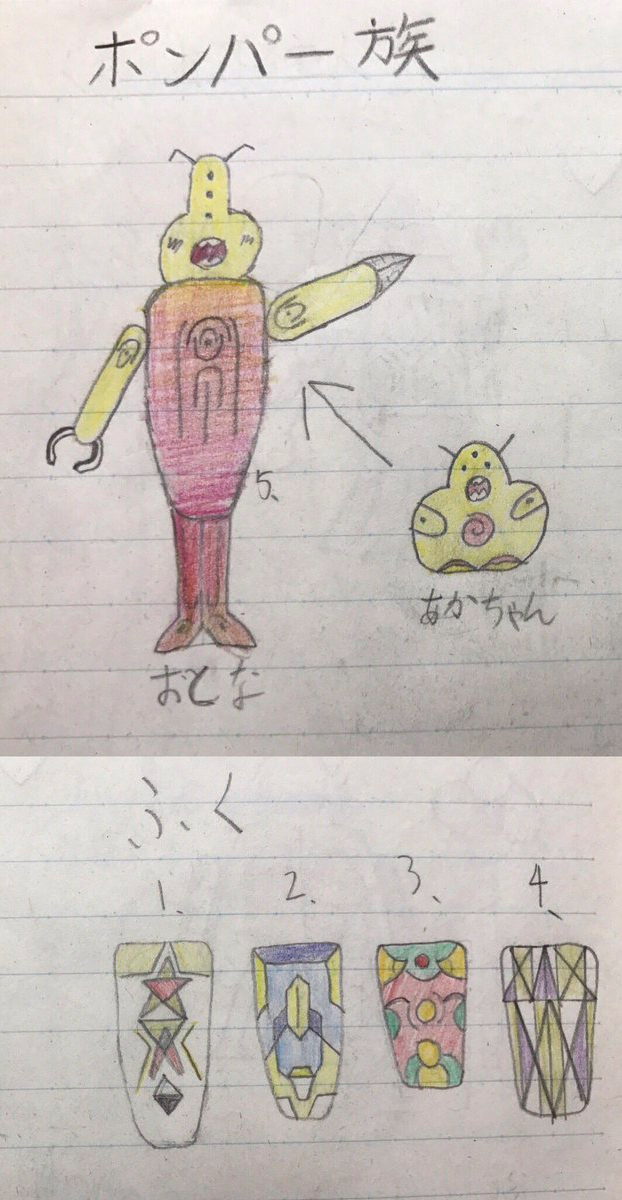 ポンパー族
5、
あかちゃん
おとな
ふく
1、 2、 3、 4、